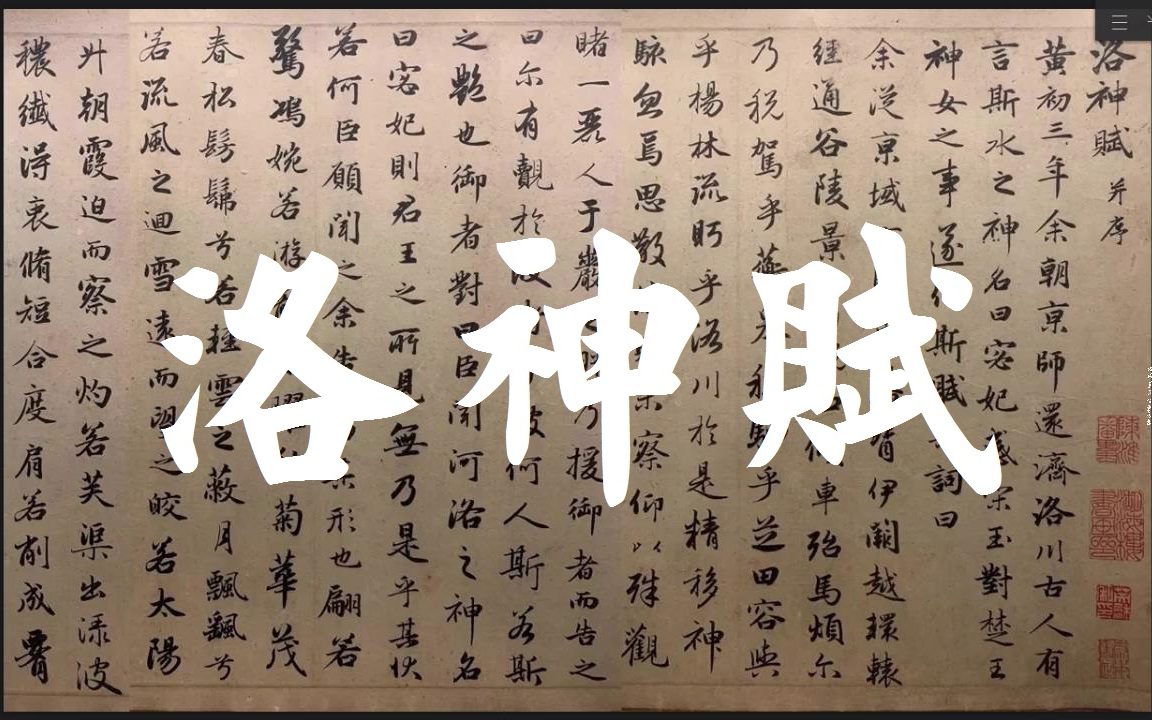 洛神賦
洛神賦 并序
黃初三年余朝京師還濟洛川古人有
言斯水之神名曰宓妃感宋玉對楚王
神女之事遂作斯賦 詞曰
余從京域 背伊闕越轘轅
經通谷陵景 車殆馬煩尓
乃税駕乎蘅 乎芝田容與
乎楊林流眄乎洛川於是精移神
駭忽焉思散 察仰以殊觀
睹一麗人于巖 乃援御者而告之
曰尓有覿於彼 彼何人斯若斯
之艷也御者對曰臣聞河洛之神名
曰宓妃則君王之所見無乃是乎其狀
若何臣願聞之余告 形也翩若
驚鴻婉若游 菊華茂
春松髣髴兮若輕雲之蔽月飄飄兮
若流風之迴雪遠而望之皎若太陽
升朝霞迫而察之灼若芙渠出淥波
穠纖得衷脩短合度肩若削成